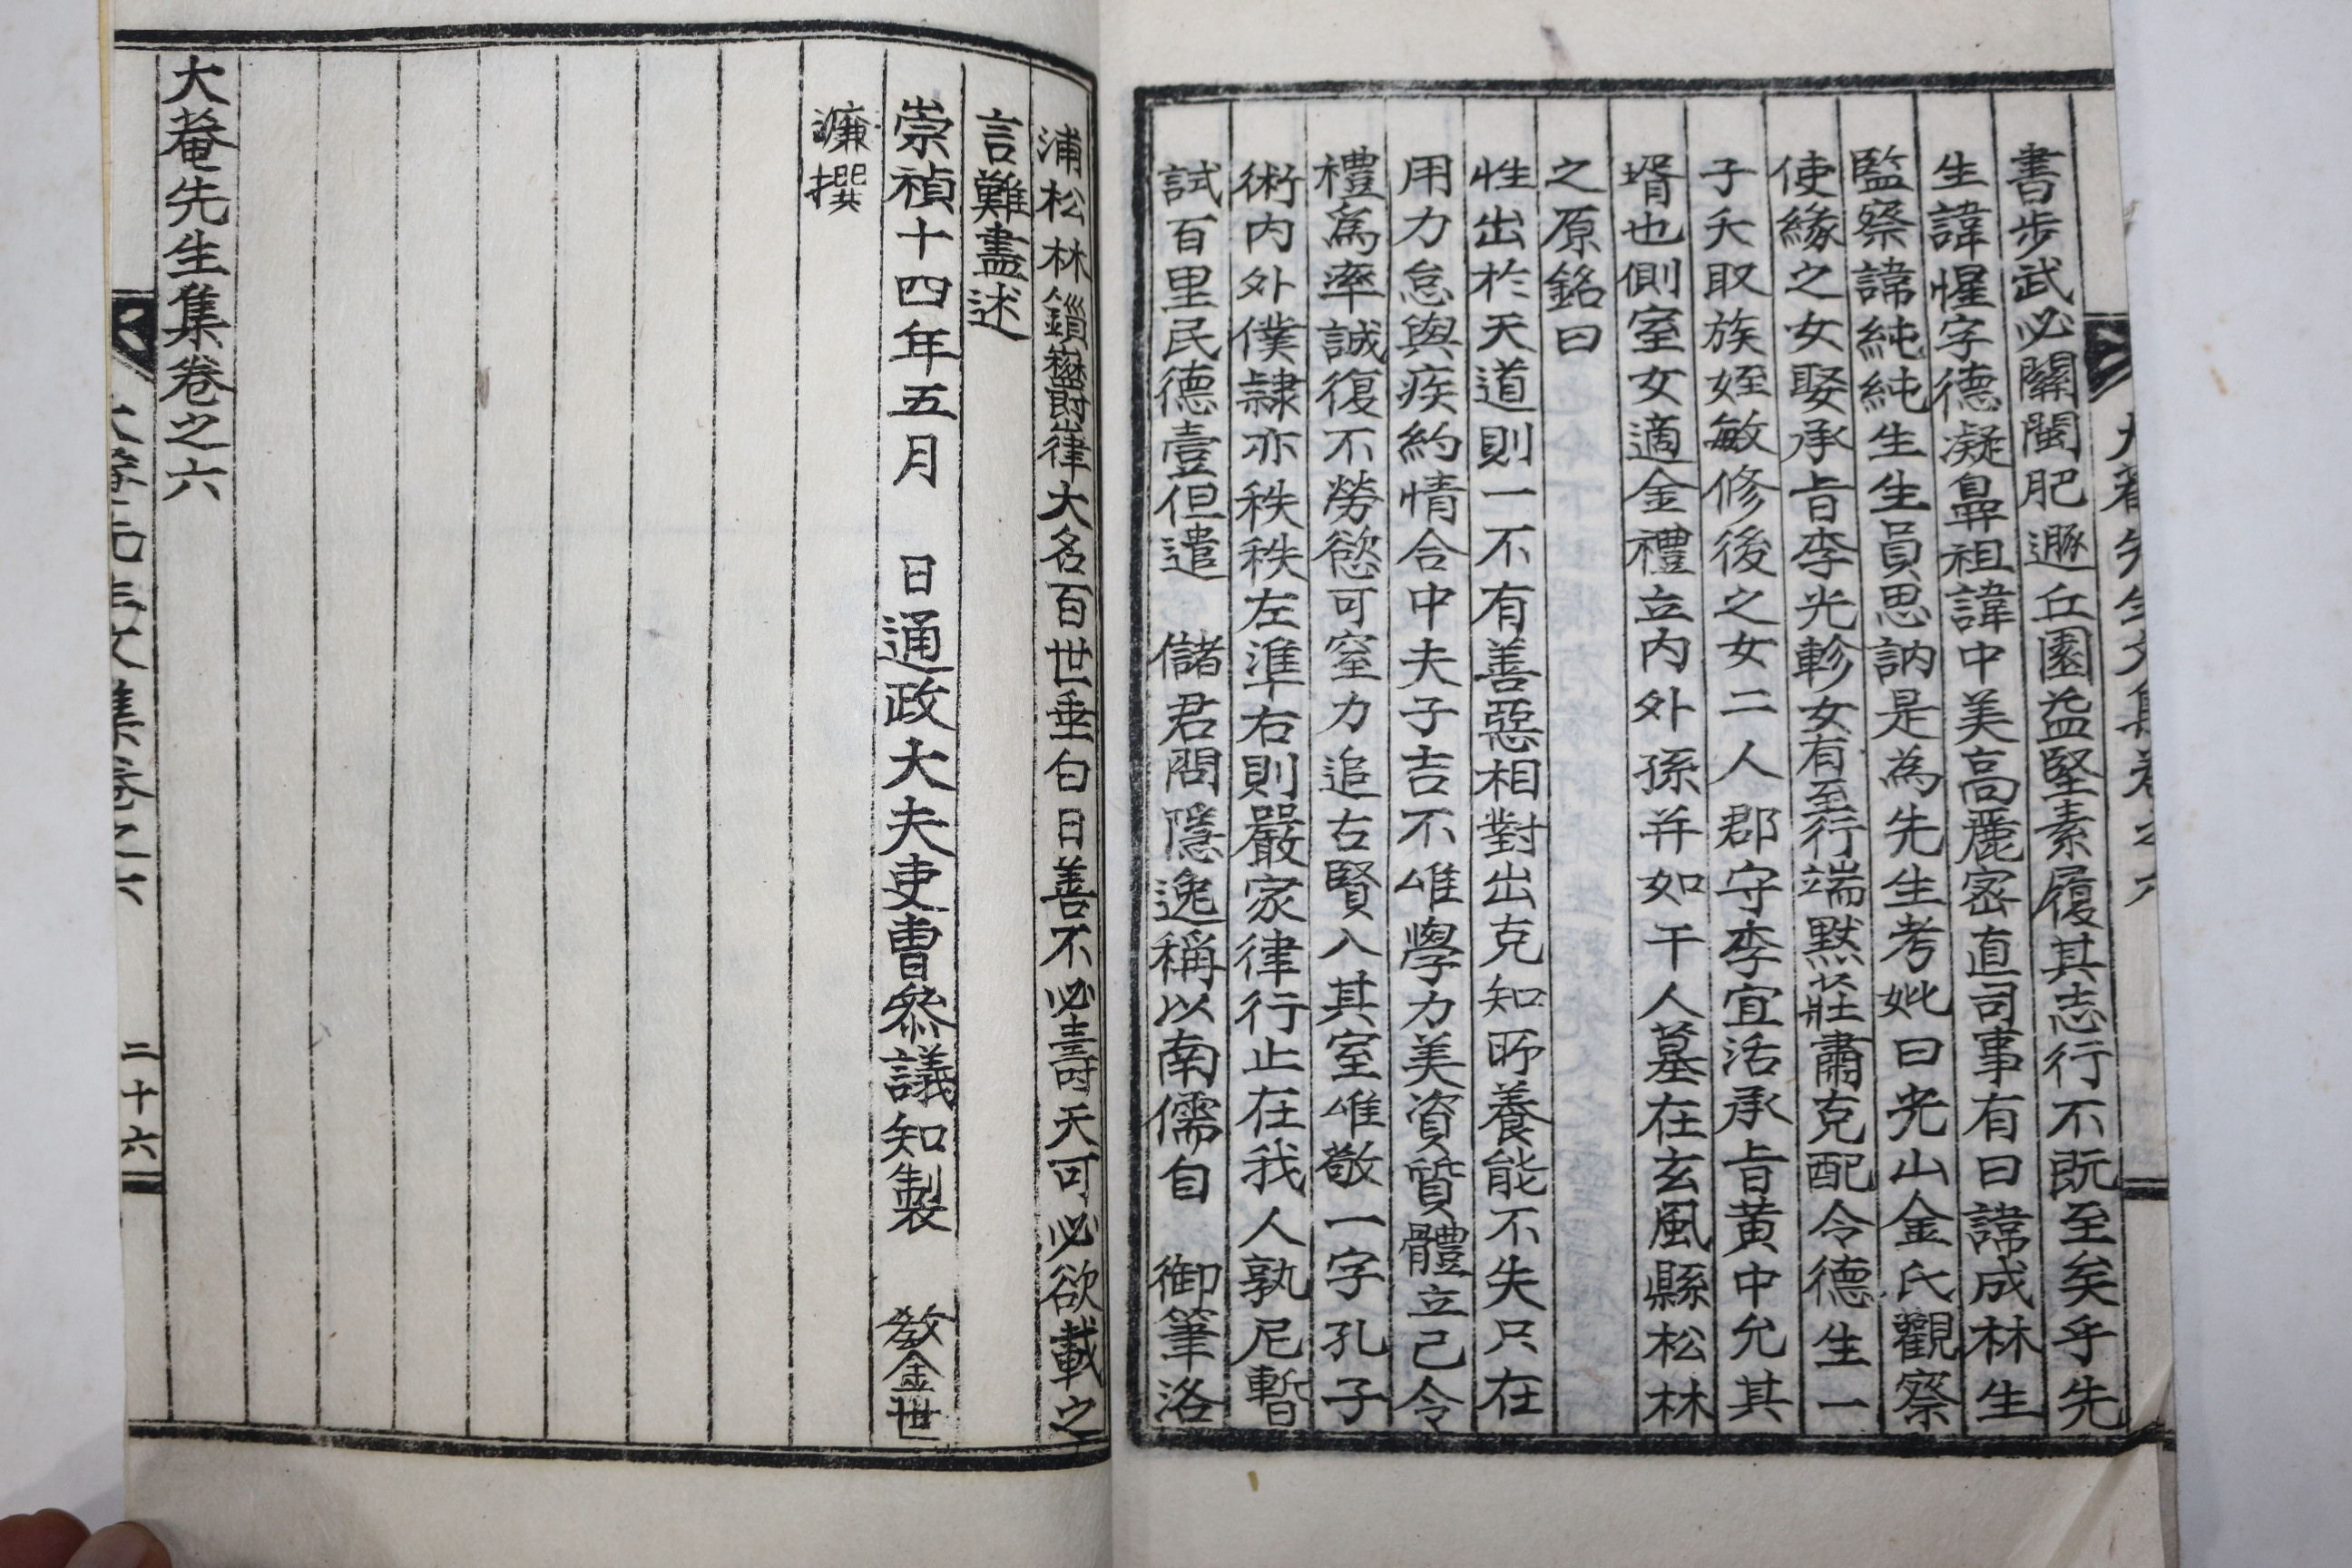 大菴先生文集卷之六
書步武必關閩肥遯丘園益堅素履其志行不既至矣乎先
生諱惺字德凝鼻祖諱中美高麗密直司事有曰諱成林生
監察諱純純生生員思訥是為先生考妣曰光山金氏觀察
使緣之女娶承旨李光軫女有至行端默莊肅克配令德生一
子夭取族姪敏修後之女二人郡守李宜活承旨黃中允其
壻也側室女適金禮立內外孫并如干人墓在玄風縣松林
之原銘曰
性出於天道則一不有善惡相對出克知所養能不失只在
用力怠與疾約情合中夫子吉不唯學力美資質體立己令
禮爲率誠復不勞慾可窒力追古賢入其室唯敬一字孔子
術內外僕隷亦秩秩左準右則嚴家律行止在我人孰尼暫
試百里民德壹但遣 儲君問隱逸稱以南儒自 御筆洛
浦松林鎻崷崒大名百世垂白日善不必壽天可必欲載之
言難盡述
崇禎十四年五月 日通政大夫吏曹參議知製 敎金世
濂撰
大菴先生集卷之六
二十六